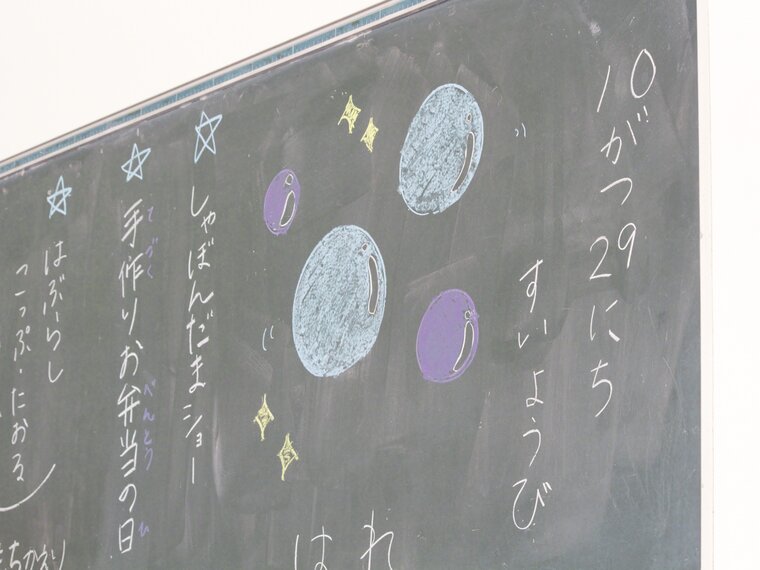 10がつ29にち
すいようび
はれ
しゃぼんだまショー
手作りお弁当の日
てづく
べんとう
ひ
はぶらし
こっぷ・たおる